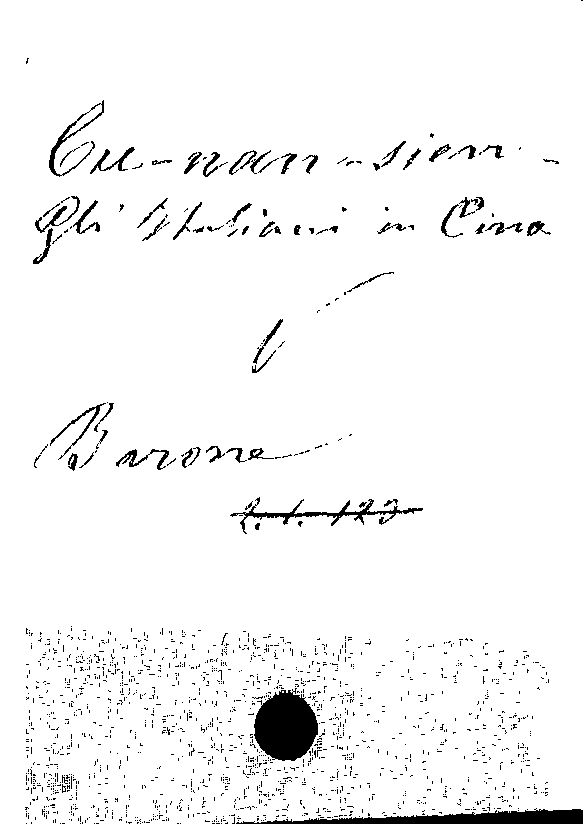 Cu-nan-sien -
Gli Italiani in Cina
V
Barone
2. 1. 123